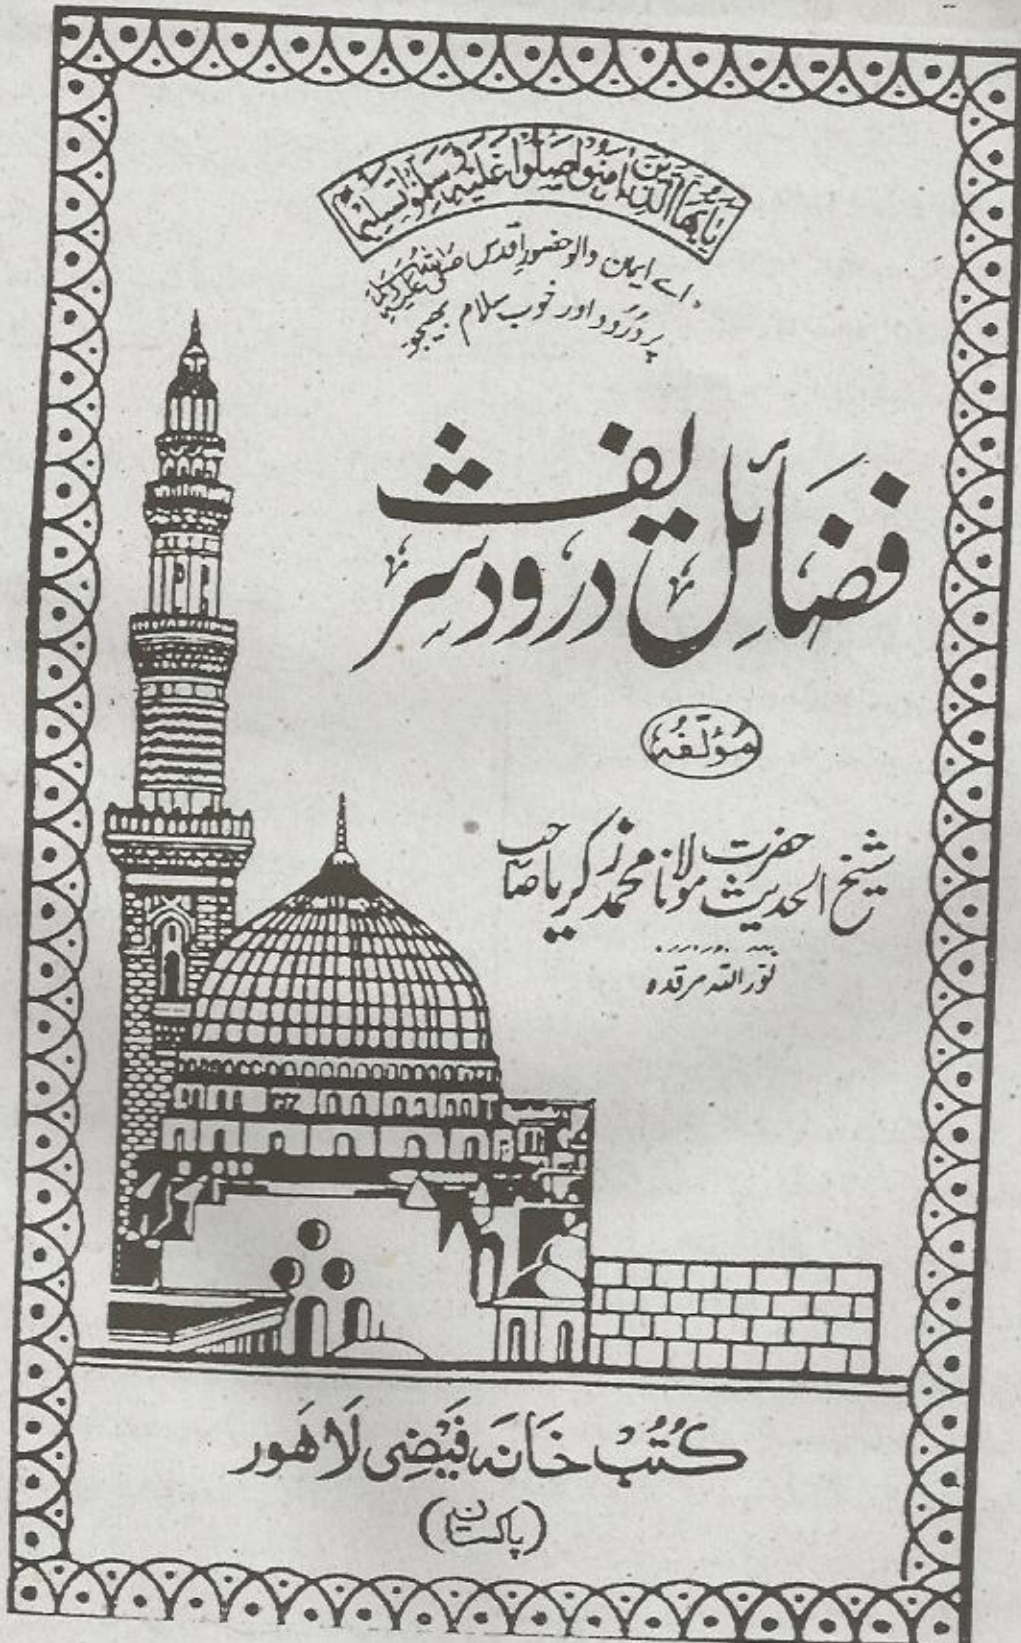 يَٰٓأَيُّهَا الَّذِينَ اٰمَنُوا صَلُّوا عَلَيْهِ وَسَلِّمُوا تَسْلِيمًا
اے ایمان والو حضورِ اقدس صلی اللہ علیہ وسلم
پر درُود اور خوب سلام بھیجو
فضَائِل درود شریف
مؤلّفہٗ
شیخ الحدیث حضرت مولانا محمد زکریا صاحب
نور اللہ مرقدہ
کُتُبْ خَانَہ فَیْضِی لَاهَور
(پاکستان)